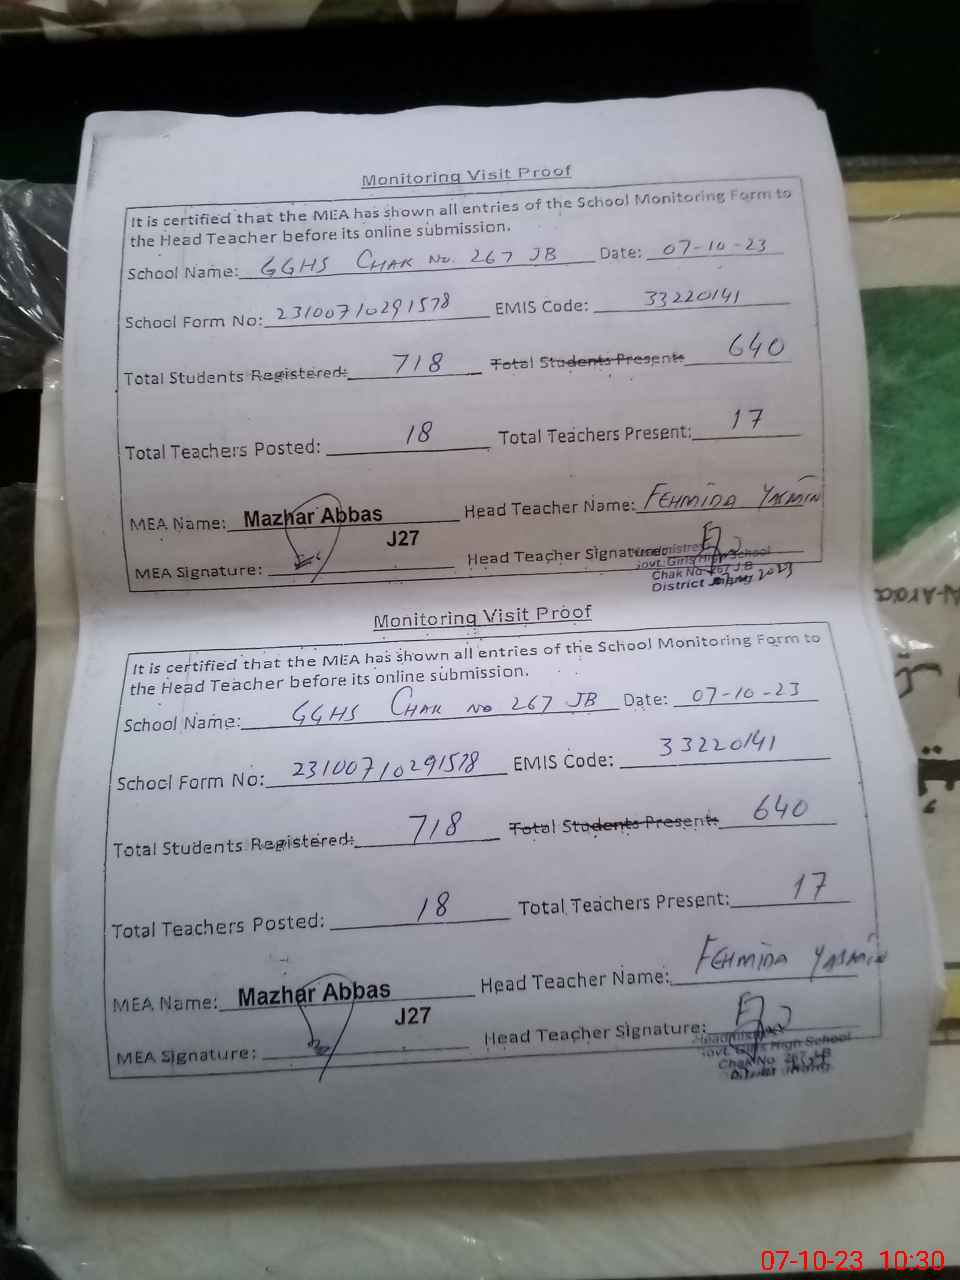 Monitoring Visit Proof
It is certified that the MEA has shown all entries of the School Monitoring Form to
the Head Teacher before its online submission.
School Name: GGHS CHAK No. 267 JB Date: 07-10-23
School Form No: 23100710291578 EMIS Code: 33220141
Total Students Registered: 718 Total Students Present: 640
Total Teachers Posted: 18 Total Teachers Present: 17
MEA Name: Mazhar Abbas Head Teacher Name: FEHMIDA YASMIN
J27
MEA Signature: Head Teacher Signature:
Govt. Girls High School
Chak No. 267 J.B
District
Monitoring Visit Proof
It is certified that the MEA has shown all entries of the School Monitoring Form to
the Head Teacher before its online submission.
School Name: GGHS CHAK No 267 JB Date: 07-10-23
School Form No: 23100710291578 EMIS Code: 33220141
Total Students Registered: 718 Total Students Present: 640
Total Teachers Posted: 18 Total Teachers Present: 17
MEA Name: Mazhar Abbas Head Teacher Name: FEHMIDA YASMIN
J27
MEA Signature: Head Teacher Signature:
Govt. Girls High School
Chak No. 267 J.B
07-10-23 10:30